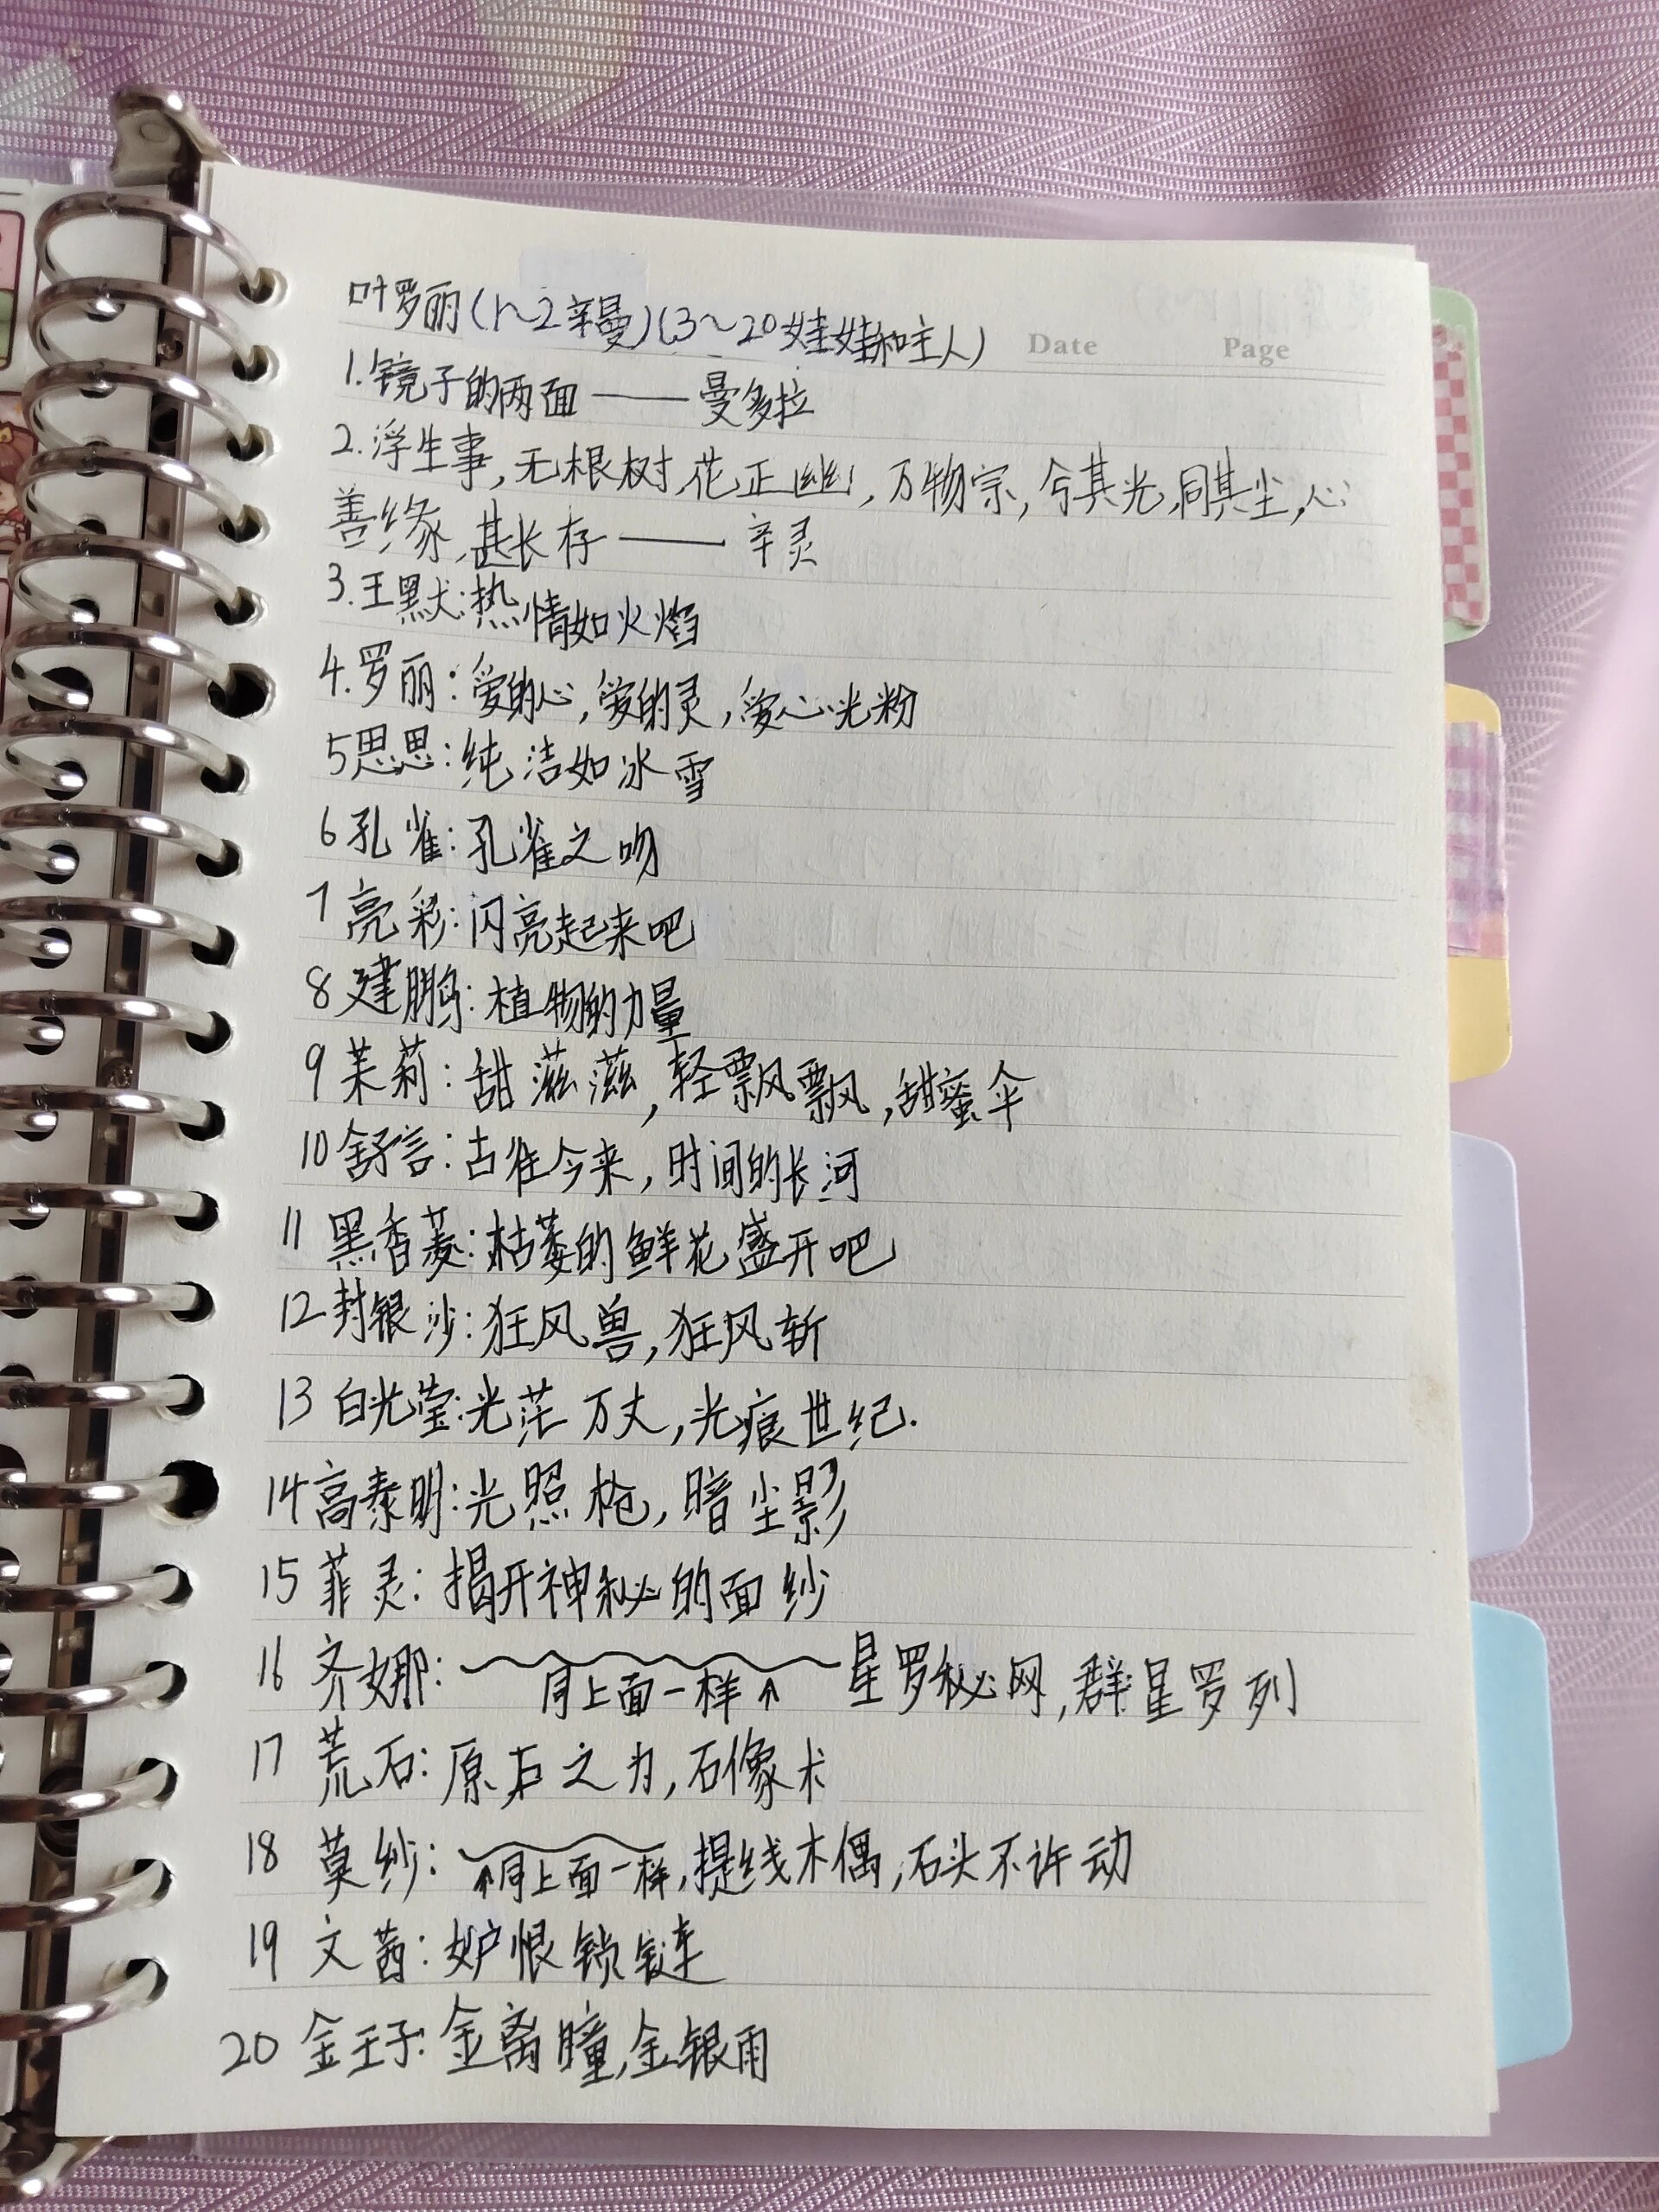 叶罗丽(1~2辛曼)(3~20娃娃和主人)
Date Page
1.镜子的两面——曼多拉
2.浮生事,无根树,花正幽,万物宗,兮其光,同其尘,心
善缘,甚长存——辛灵
3.王默:热情如火焰
4.罗丽:爱的心,爱的灵,爱心光粉
5思思:纯洁如冰雪
6孔雀:孔雀之吻
7亮彩:闪亮起来吧
8建鹏:植物的力量
9茉莉:甜滋滋,轻飘飘,甜蜜伞
10舒言:古往今来,时间的长河
11黑香菱:枯萎的鲜花盛开吧
12封银沙:狂风兽,狂风斩
13白光莹:光茫万丈,光痕世纪.
14高泰明:光照枪,暗尘影
15菲灵:揭开神秘的面纱
16齐娜:同上面一样↑星罗秘网,群星罗列
17荒石:原石之力,石像术
18莫纱:↑同上面一样,提线木偶,石头不许动
19文茜:妒恨锁链
20金王子:金离瞳,金银雨